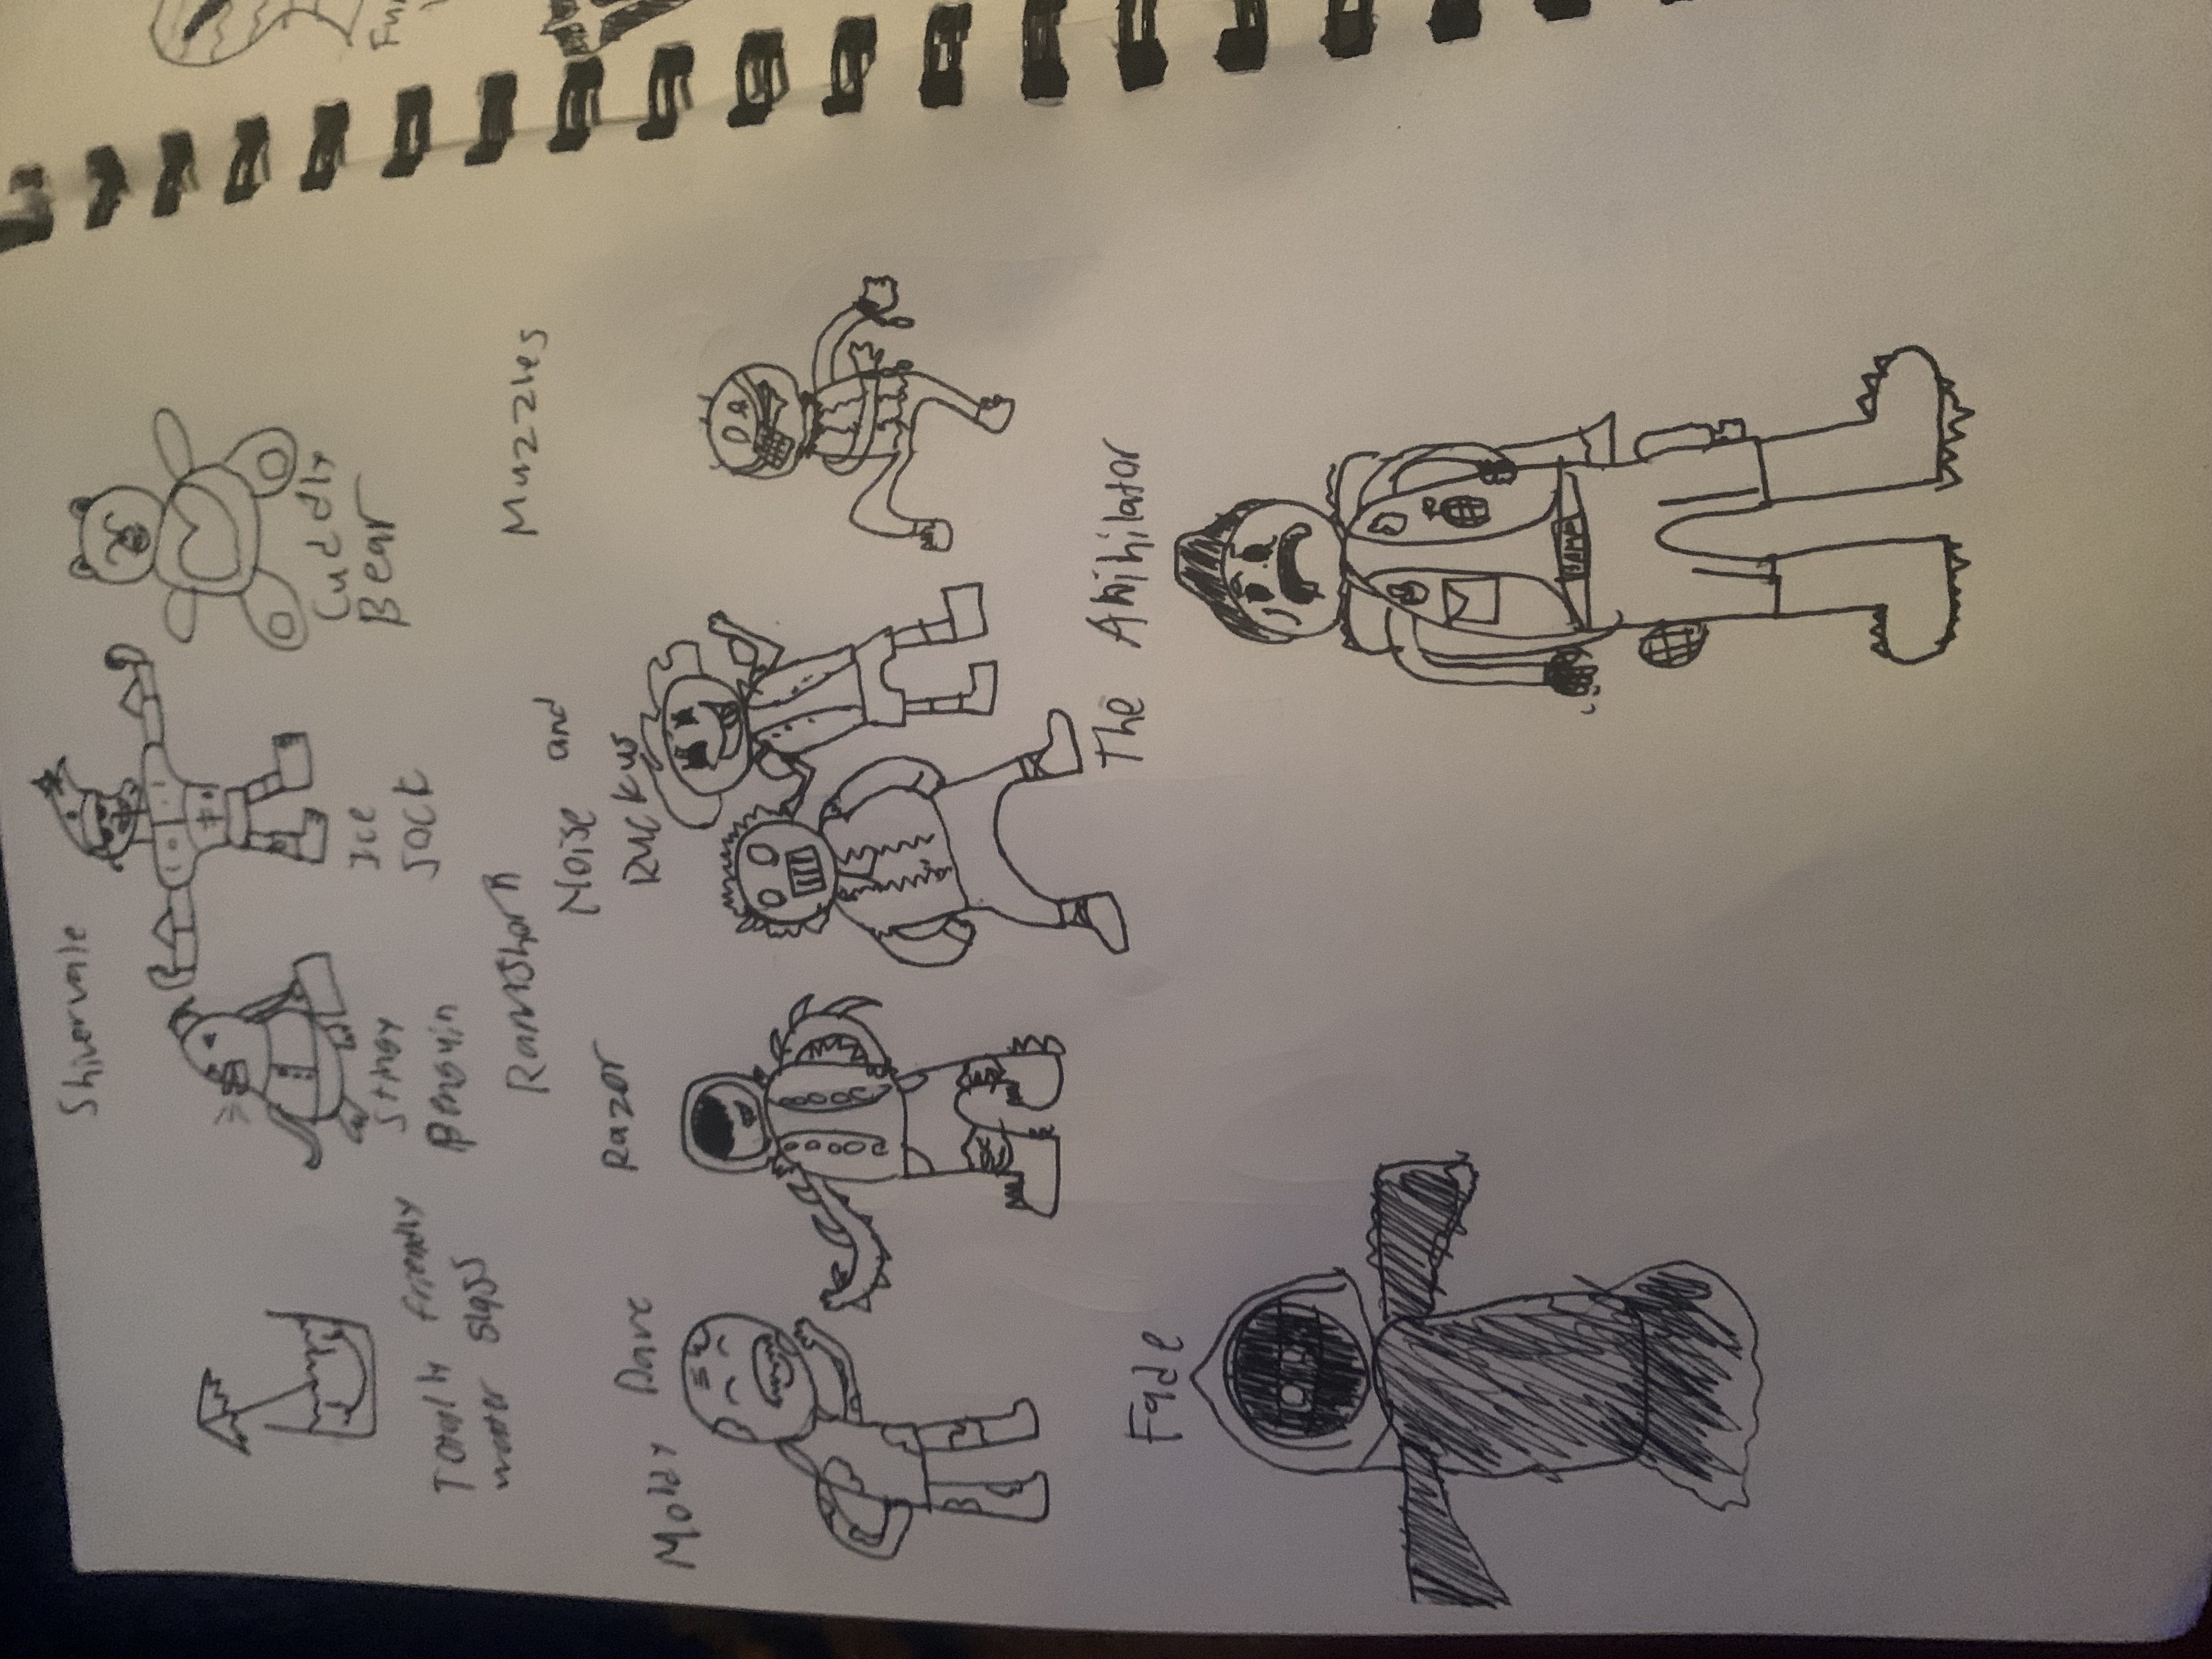 Shivervale
Totally friendly
water glass
Stingy
Penguin
Ice
JOCK
Cuddly
Bear
Ramshorn
Moldy Dave
Razor
Noise and
Ruckus
Muzzles
Fade
The Anihilator
Fun